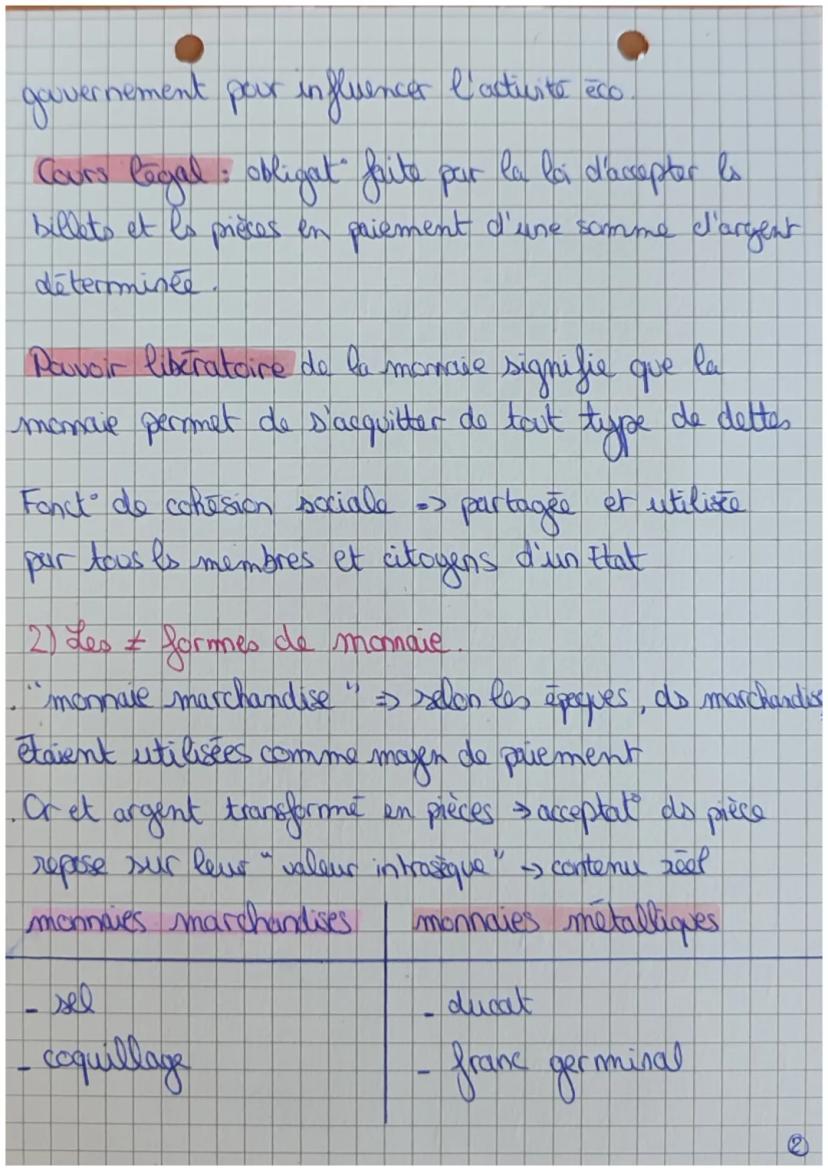 gouvernement pour influencer l'activité éco.
Cours légal : obligat° faite par la loi d'accepter ls
billets et ls pièces en paiement d'une somme d'argent
déterminée.
Pouvoir libératoire de la monnaie signifie que la
monnaie permet de s'acquitter de tout type de dettes
Fonct° de cohésion sociale => partagée et utilisée
par tous ls membres et citoyens d'un Etat
2) Les ≠ formes de monnaie.
. "monnaie marchandise" => selon les époques, ds marchandis
étaient utilisées comme moyen de paiement
. Or et argent transformé en pièces → acceptat° ds pièce
repose sur leur "valeur intrasèque" → contenu réel
monnaies marchandises | monnaies métalliques
- sel | - ducat
- coquillage | - franc germinal
②